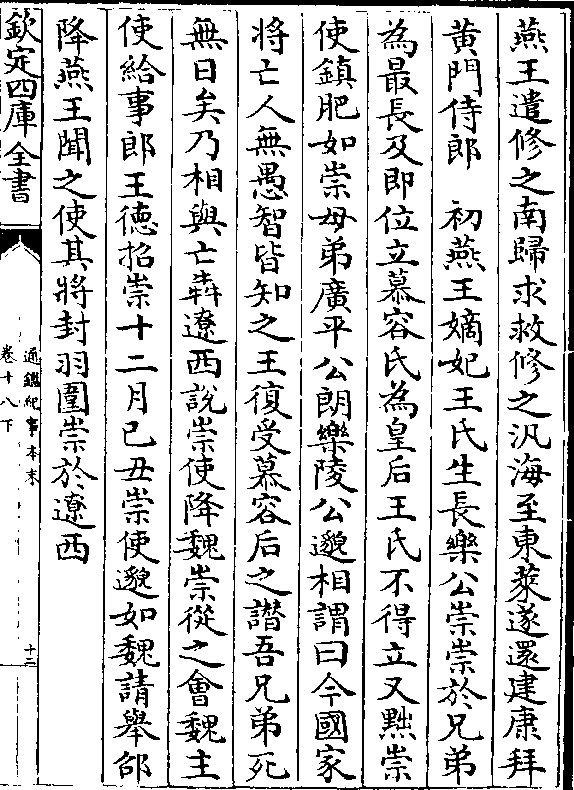 燕王遣修之南歸求救修之汎海至東萊遂還建康拜
黃門侍郎　初燕王嫡妃王氏生長樂公崇崇於兄弟
為最長及即位立慕容氏為皇后王氏不得立又黜崇
使鎮肥如崇母弟廣平公朗樂陵公邈相謂曰今國家
將亡人無愚智皆知之王復受慕容后之譖吾兄弟死
無日矣乃相與亡犇遼西說崇使降魏崇從之會魏主
使給事郎王德招崇十二月已丑崇使邈如魏請舉郤
降燕王聞之使其將封羽圍崇於遼西
欽定四庫全書
通鑑紀事本末
卷十八下
十二